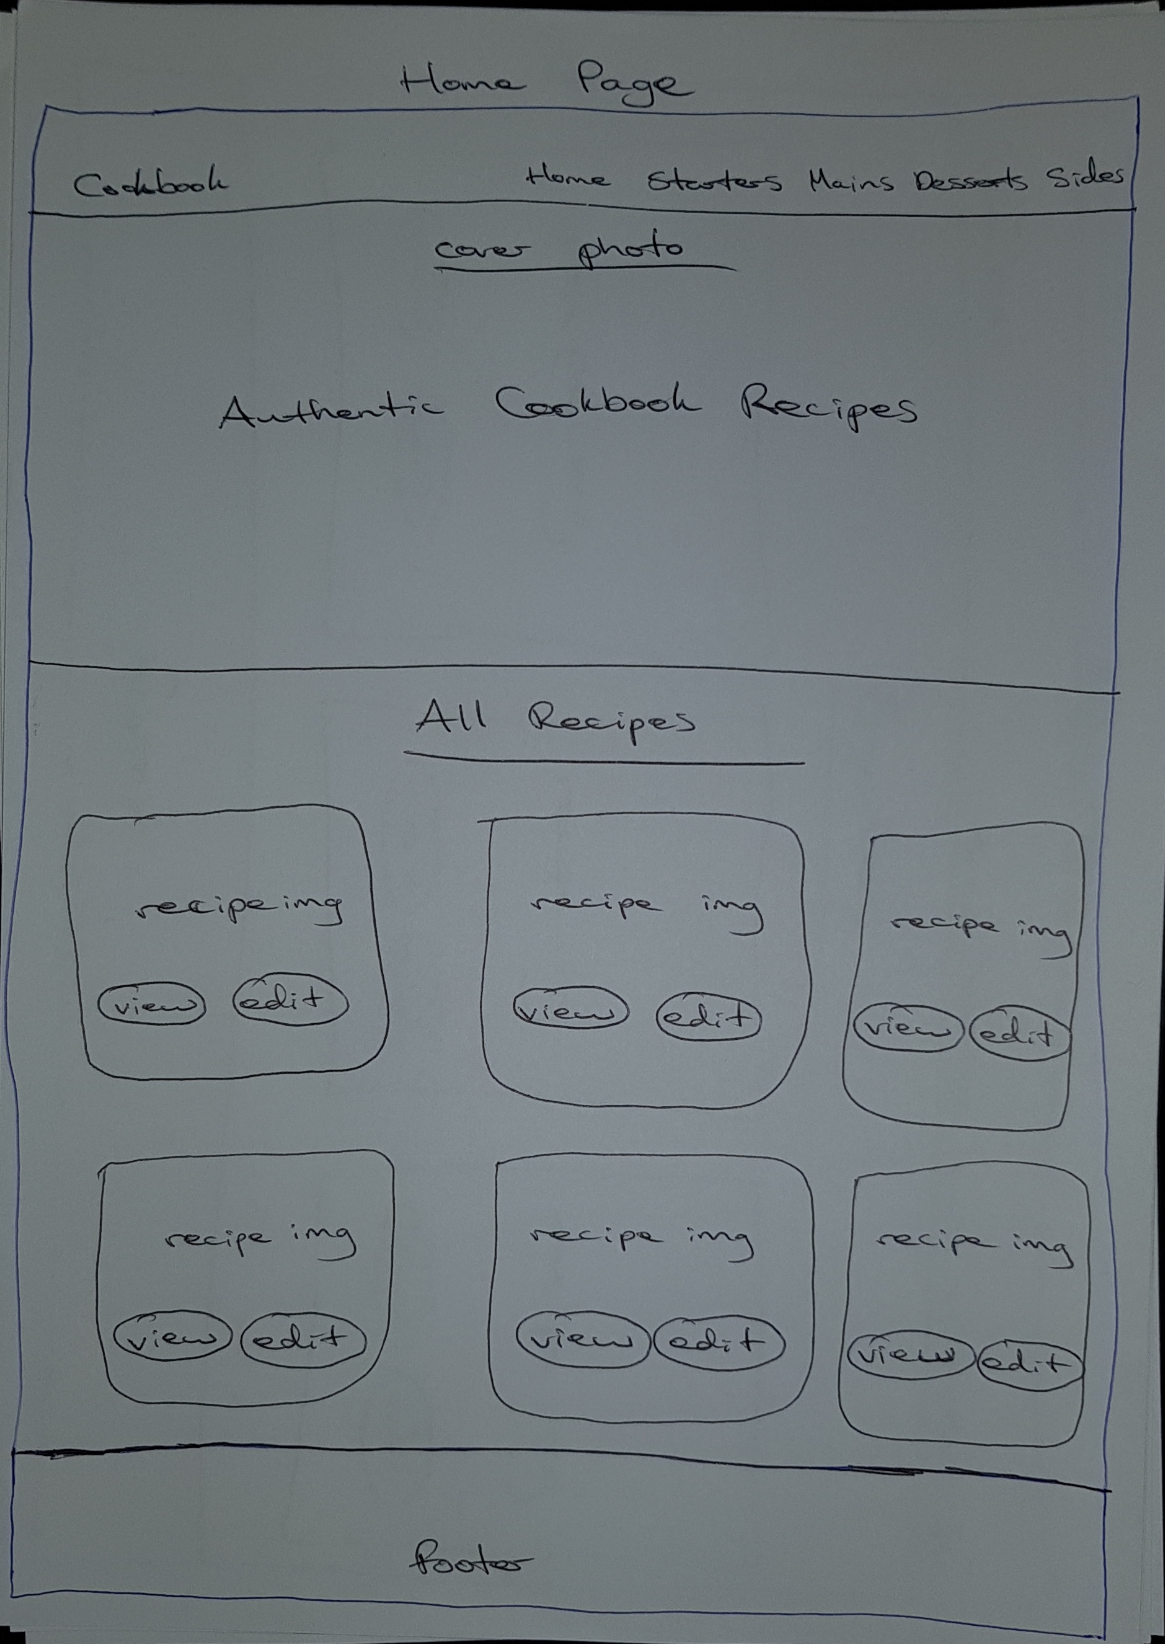 Home Page
Cookbook Home Starters Mains Desserts Sides
cover photo
Authentic Cookbook Recipes
All Recipes
recipe img recipe img recipe img
view edit view edit view edit
recipe img recipe img recipe img
view edit view edit view edit
footer